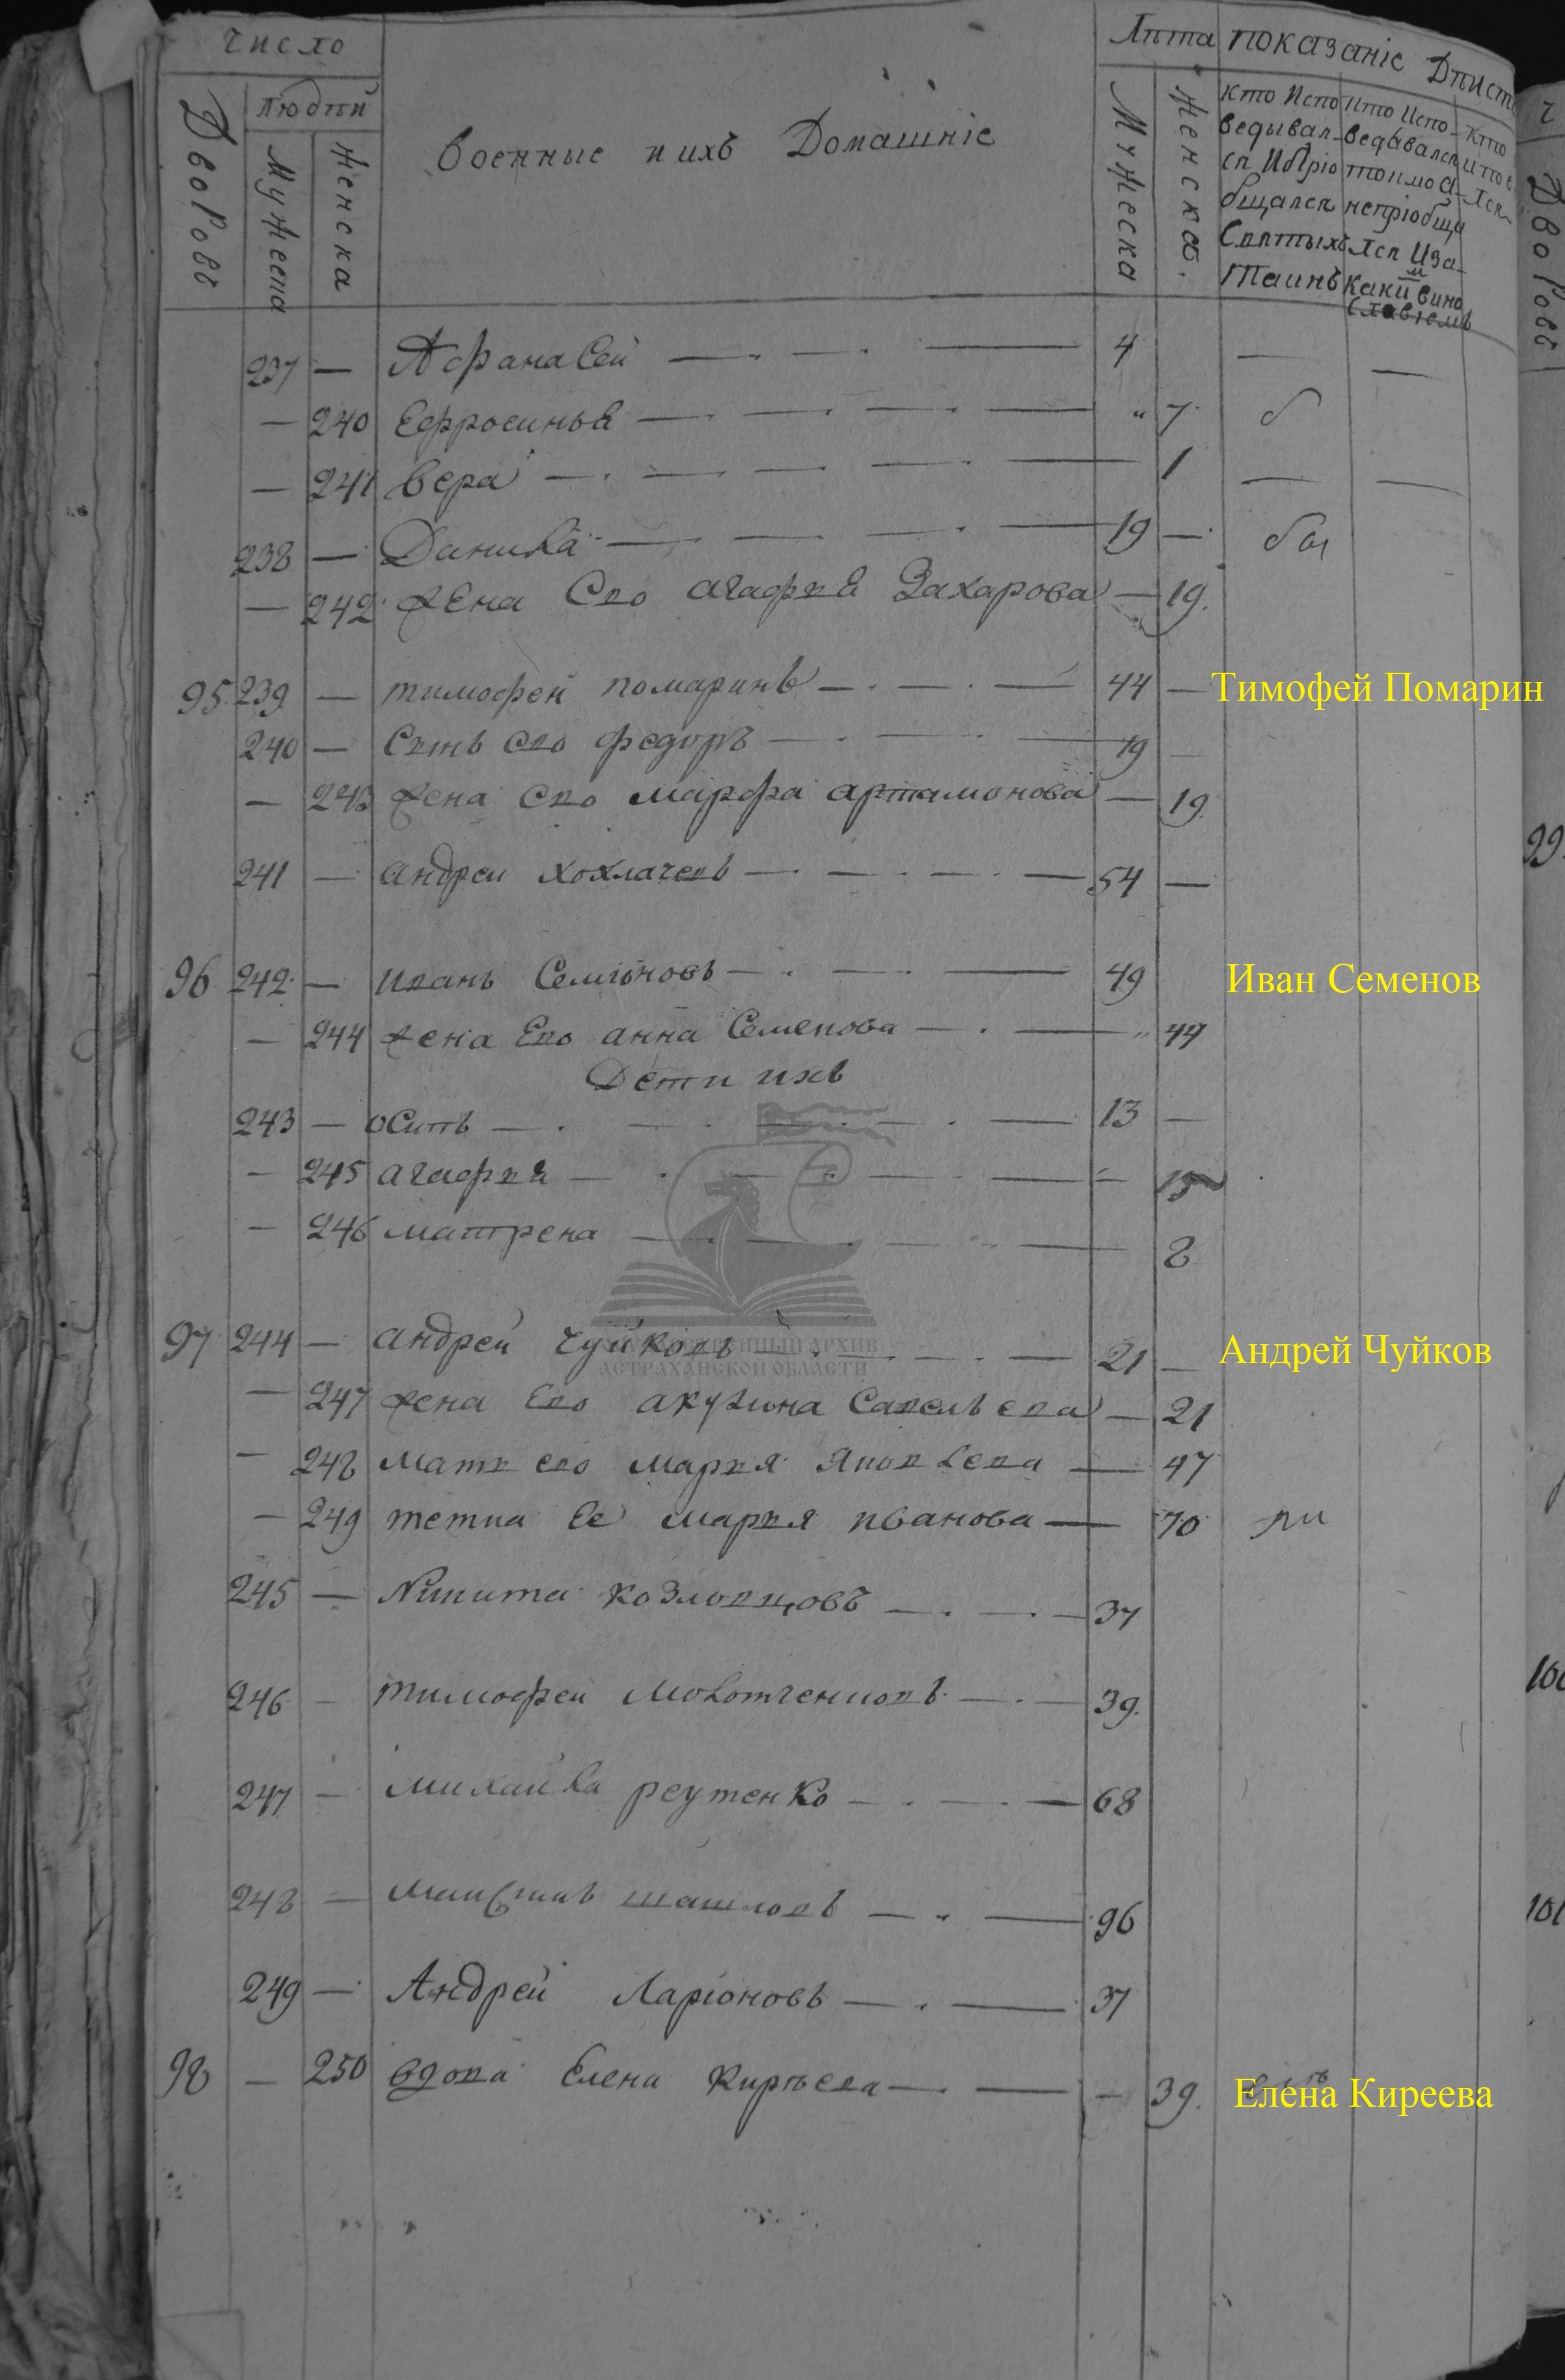 Число
Лѣта показанiе Дѣист
Дворовъ
людѣй
Мужеска
Женска
Военные и ихъ Домашнiе
Мужеска
Женска.
кто Испо
ведывал-
ся И прiо
бщался
Святыхъ
Таинъ
кто Испо-
ведавался
токмо а-
непрiобща
лся Иза-
каки
м
вино
словiемъ
кто
Дворовъ
237 — Афанасей — 4 — —
— 240 Ефросинья — " 7. б
— 241 Вера — 1 — —
238 — Данила — 19 — бы
— 242 жена Его агафья Захарова — 19.
95 239 — тимофей помаринъ — 44 — Тимофей Помарин
240 — Сынъ его федоръ — 19 —
— 243 жена его марфа артамонова — 19.
99.
241 — андреи хохлачевъ — 54 —
96 242 — иванъ Семѣновъ — 49 Иван Семенов
— 244 жена Его анна Семенова — " 44
Дети ихъ
243 — осипъ — 13 —
— 245 агафья — 15
— 246 матрена — 8
97 244 — андрей чуйковъ — 21 — Андрей Чуйков
ГОСУДАРСТВЕННЫЙ АРХИВ
АСТРАХАНСКОЙ ОБЛАСТИ
— 247 жена Его акулина савельева — 21
— 248 мать его марья яковлева — 47
— 249 тетка Ее марья иванова — 70
245 — Никита козловцовъ — 37
246 — тимофеи молотченковъ — 39.
100
247 — михайла реутенко — 68
248 — шашловъ — 96
101
249 — Андрей Ларiоновъ — 37
98 — 250 вдова Елена Кирѣева — 39. Елена Киреева